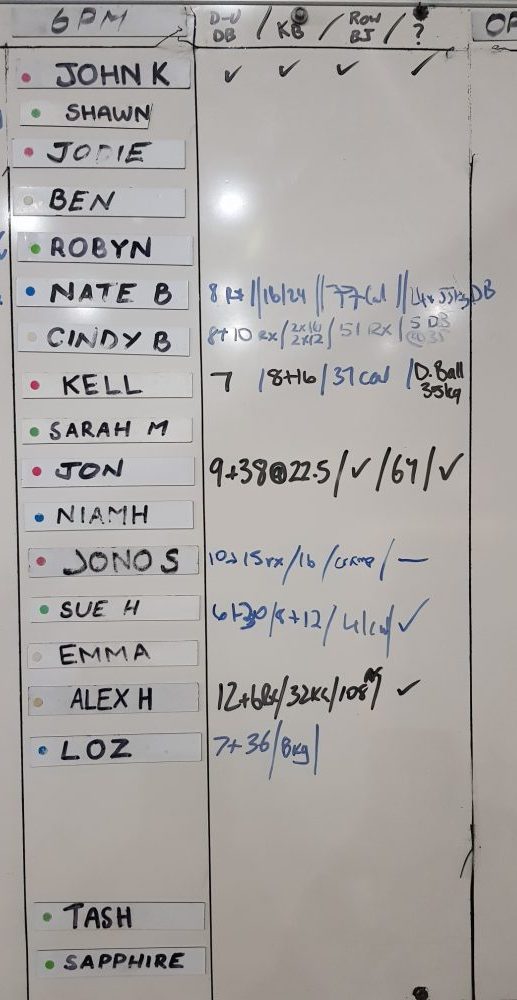 6PM D-U / KB / ROW / ? OP
DB BJ
JOHN K ✓ ✓ ✓ ✓
SHAWN
JODIE
BEN
ROBYN
NATE B 8 Rx // 16/24 // 77 Cal // DB
CINDY B 8+10 Rx / 2x16 / 51 Rx / 5 DB
2x12
KELL 7 / 8+16 / 37 cal / D. Ball
35kg
SARAH M
JON 9+38@22.5 / ✓ / 64 / ✓
NIAMH
JONO S 10+15 rx / 16 / / —
SUE H 8+12 / ✓
EMMA
ALEX H / 32KG / 108 / ✓
LOZ 7+36 / 8kg /
TASH
SAPPHIRE